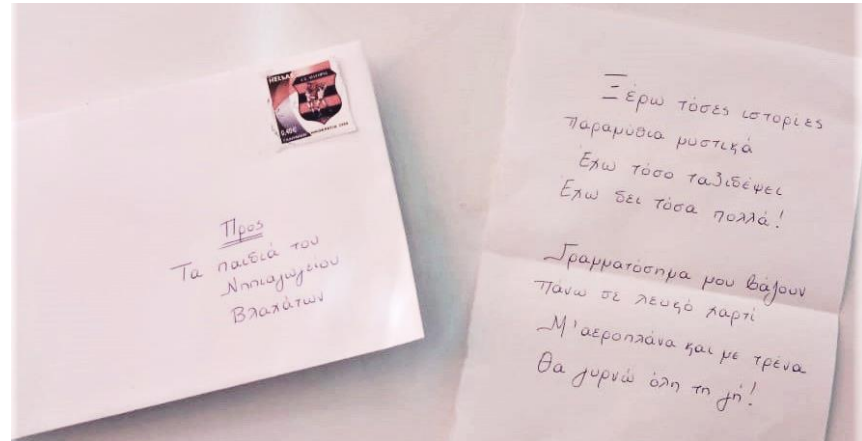 HELLAS
0,40€
Προς
Τα παιδιά του
Νηπιαγωγείου
Βλαχάτων
Ξέρω τόσες ιστορίες
Παραμύθια μυστικά
Έχω τόσο ταξιδέψει
Έχω δει τόσα πολλά!
Γραμματόσημα μου βάζουν
Πάνω σε λευκό χαρτί
Μ'αεροπλάνα και με τρένα
Θα γυρνώ όλη τη γή!